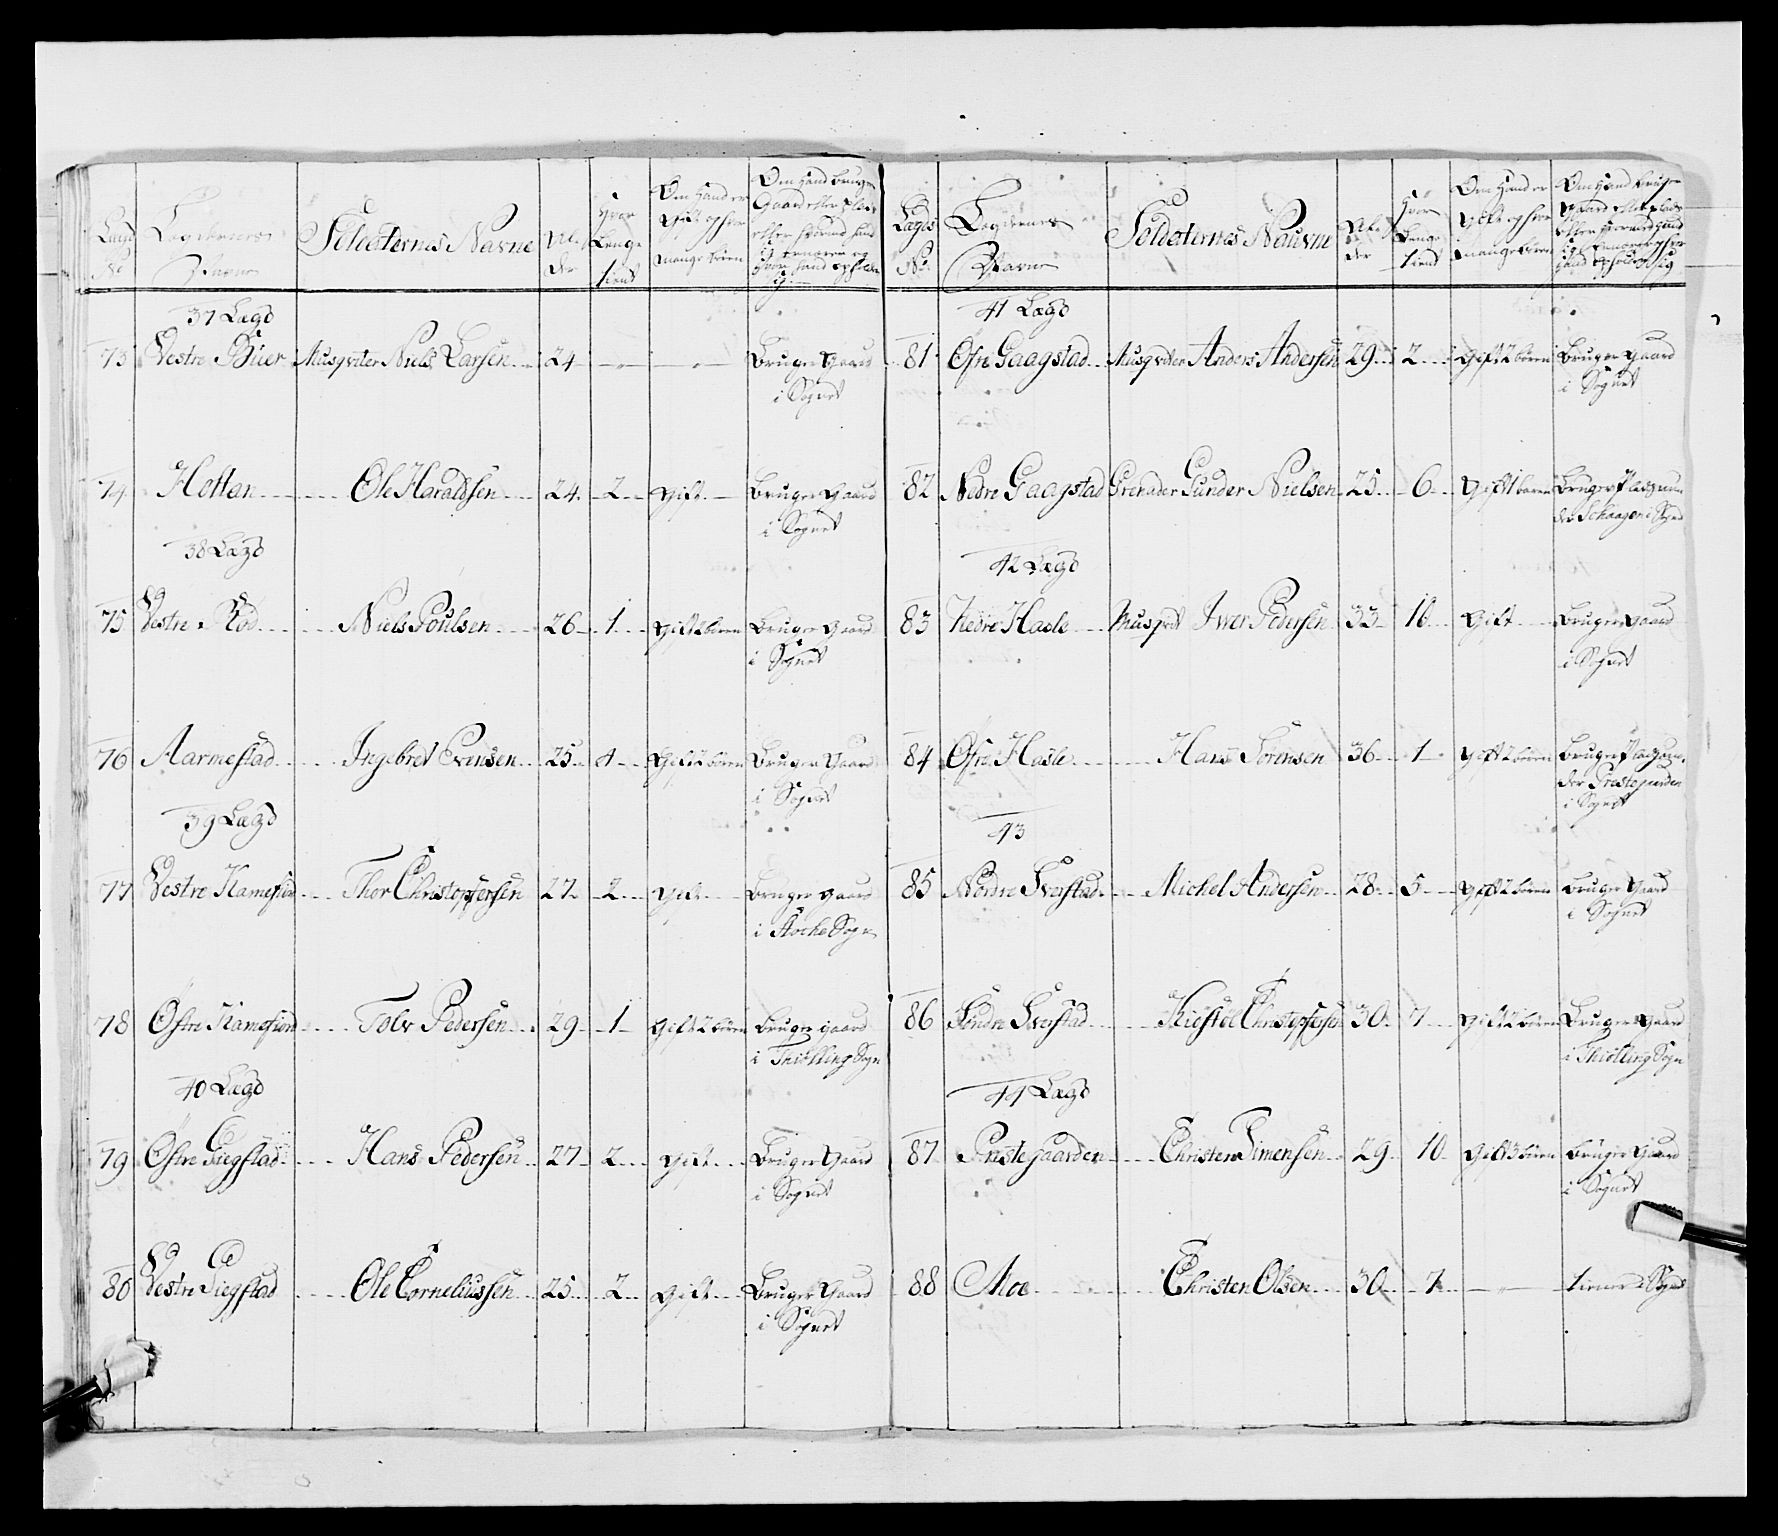 Lægd No
Lægdernes Navne
Soldaternes Navne
Alder
Hvor Længe tient
Om Hand er gift og hvor mange børen
Om Hand bruger Gaard eller Plads eller hvorved Hand sig ernærer og hvor hand opholder sig
37 Lægd
73 Vestre Büer Musqveter Niels Larsen 24 - - Bruger Gaard
i Sognet
74 Holtan Ole Haraldsen 24 2 gift Bruger Gaard
i Sognet
38 Lægd
75 Vestre Röd Niels Poulsen 26 1 gift 2 börn Bruger Gaard
i Sognet
76 Aarmestad Ingebret Evensen 25 4 gift 2 börn Bruger Gaard
i Sognet
39 Lægd
77 Vestre Hamefiord Thor Christophersen 27 2 gift Bruger gaard
i Stocke Sogn
78 Östre Hamefiord Tolv Pedersen 29 1 gift 2 börn Bruger gaard
i Thiölling Sogn
40 Lægd
79 Östre Giegstad Hans Pedersen 27 2 gift Bruger Gaard
i Sognet
80 Vestre Giegstad Ole Corneliussen 25 2 gift Bruger Gaard
i Sognet
Lægds No.
Lægdernes Navne
Soldaternes Naüvne
Alder
Hvor Længe tient
Om Hand er gift og hvor mange børen
Om Hand bruger gaard eller plads eller hvorved Hand sig ernærer og hvor Hand opholder sig
41 Lægd
81 Öfre Gaagstad Musqveter Anders Andersen 29 2 gift 2 börn Bruger Gaard
i Sognet
82 Nedre Gaagstad Grenader Gunder Nielsen 25 6 Gift 1 baren Bruger Plads un
der Schaagen i Sogned
42 Lægd
83 Nedre Hasle Musqvt Iwer Pedersen 33 10 Gift Bruger gaard
i Sognet
84 Öfre Hasle Hans Sörensen 36 1 gift 2 börn Bruger Plads un
der Prestegaarden
i Sognet
43
85 Nordre Sverstad Michel Andersen 28 5 gift 2 börn Bruger Gaard
i Sognet
86 Söndre Sverstad Kiestel Christophersen 30 7 gift 2 börn Bruger Gaard
i Thiölling Sogn
44 Lægd
87 Prestegaarden Christen Simensen 29 10 Gift 3 börn Bruger Gaard
i Sognet
88 Moe Christen Olsen 30 7 - tiener i Sognet